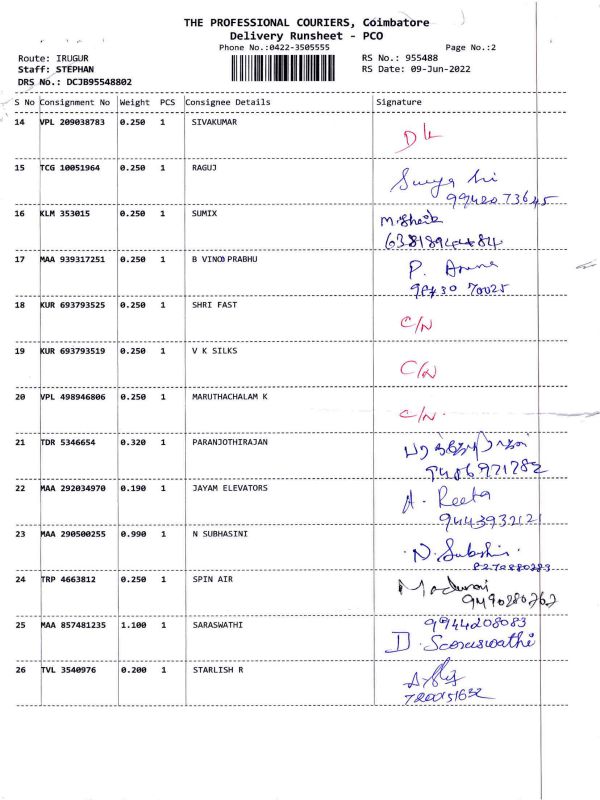 THE PROFESSIONAL COURIERS, Coimbatore
Delivery Runsheet - PCO
Phone No.:0422-3505555 Page No.:2
Route: IRUGUR RS No.: 955488
Staff: STEPHAN RS Date: 09-Jun-2022
DRS No.: DCJB95548802
S No Consignment No Weight PCS Consignee Details Signature
14 VPL 209038783 0.250 1 SIVAKUMAR
D L
15 TCG 10051964 0.250 1 RAGUJ
99420 73645
16 KLM 353015 0.250 1 SUMIX M.Sheik
17 MAA 939317251 0.250 1 B VINO PRABHU P.
70025
18 KUR 693793525 0.250 1 SHRI FAST
C/N
19 KUR 693793519 0.250 1 V K SILKS
C/N
20 VPL 498946806 0.250 1 MARUTHACHALAM K
C/N.
21 TDR 5346654 0.320 1 PARANJOTHIRAJAN
9486971782
22 MAA 292034970 0.190 1 JAYAM ELEVATORS A. Reeta
9443932121
23 MAA 290500255 0.990 1 N SUBHASINI
N. Subashini
24 TRP 4663812 0.250 1 SPIN AIR
9490280262
25 MAA 857481235 1.100 1 SARASWATHI 9944208083
D. Scoraswathi
26 TVL 3540976 0.200 1 STARLISH R